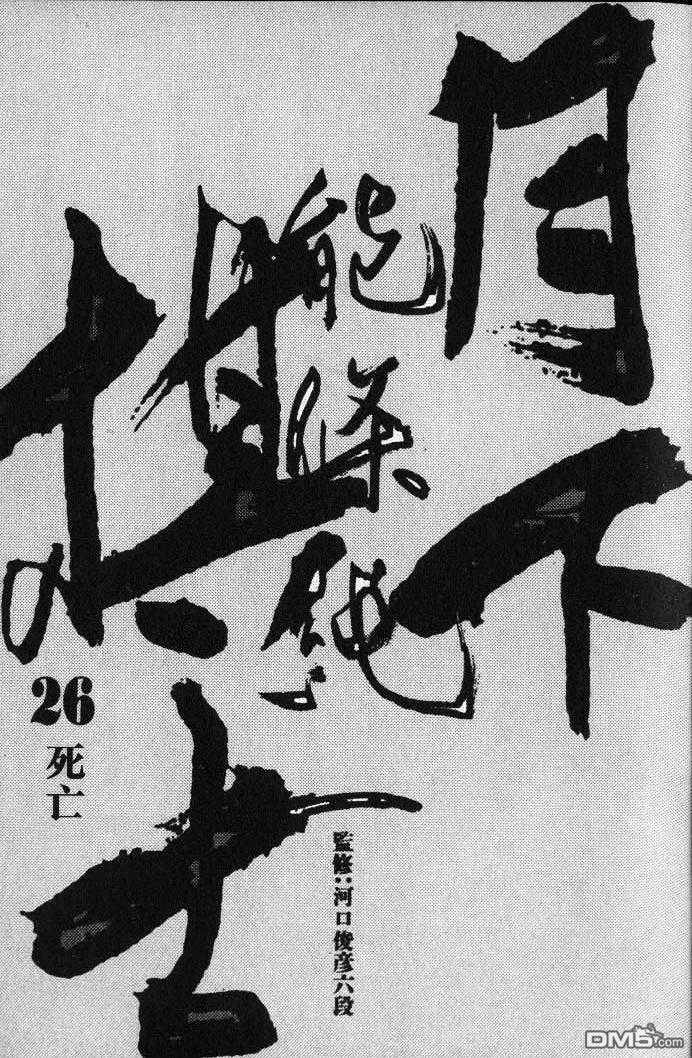 月下
棋士
能條純一
26
死亡
監修:河口俊彦六段
DM5.com